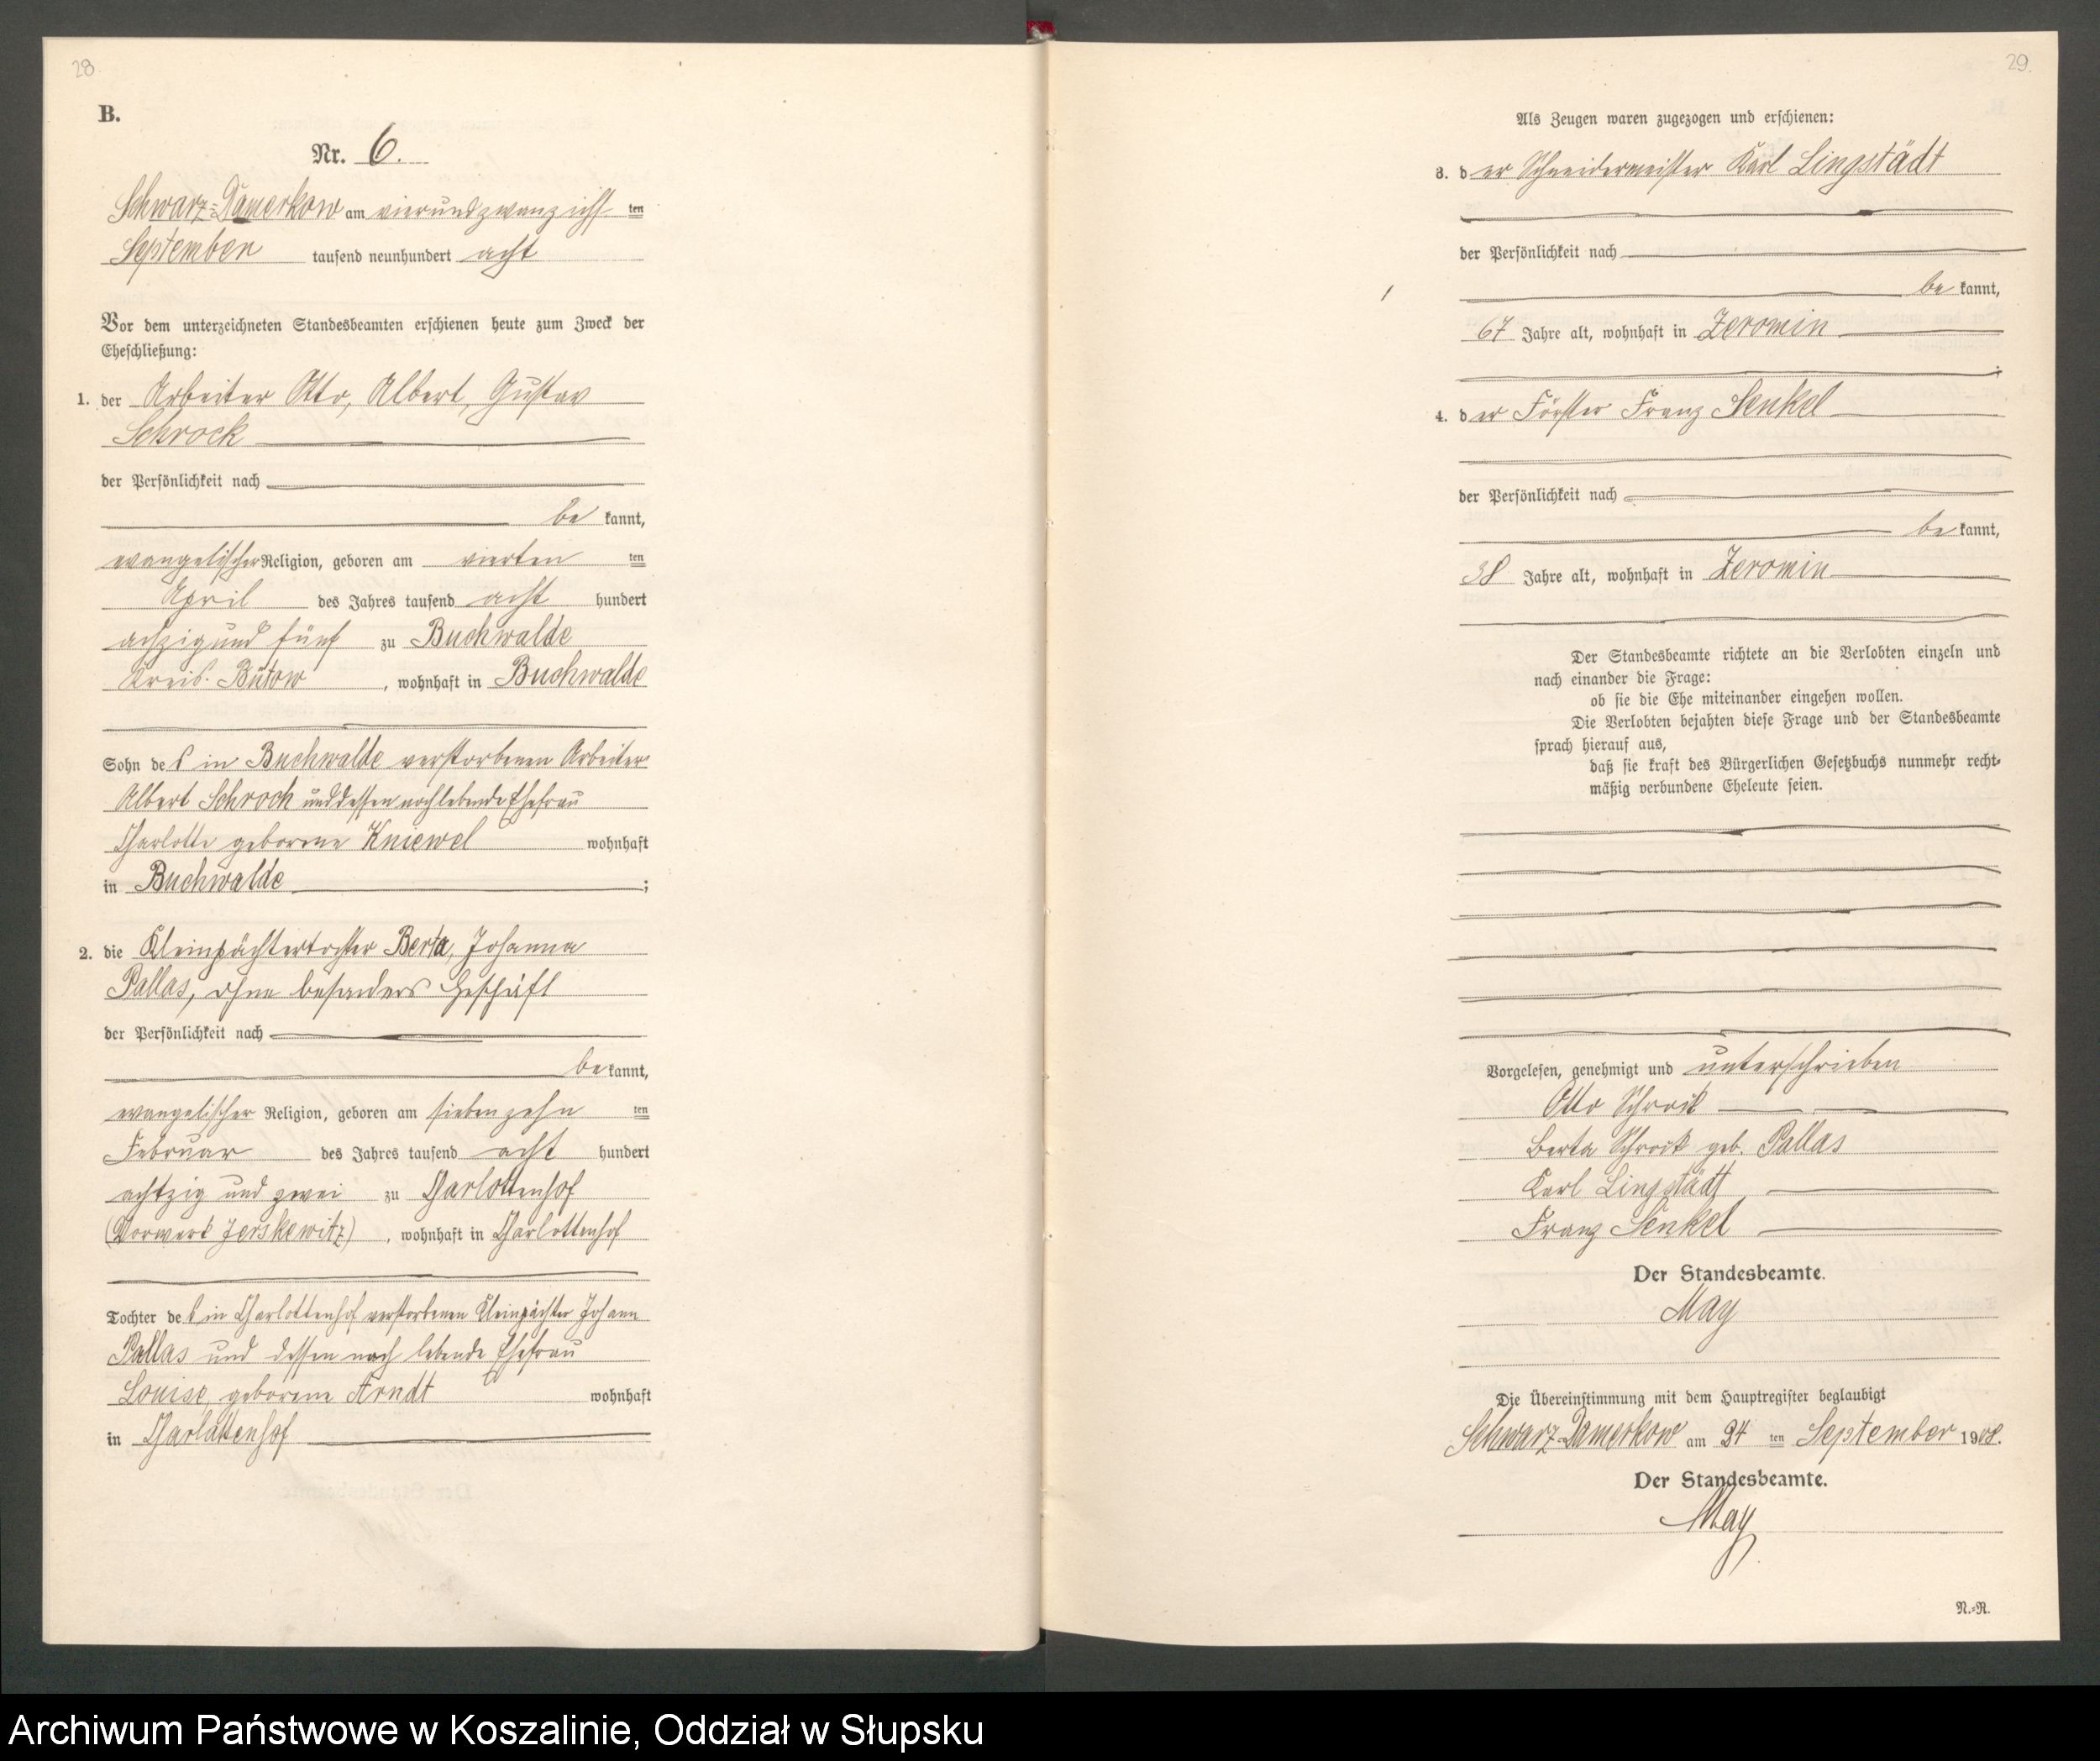 28.
B.
Nr. 6.
Schwarz-Damerkow am vierundzwanzigst ten
September tausend neunhundert acht
Vor dem unterzeichneten Standesbeamten erschienen heute zum Zweck der
Eheschließung:
1. der Arbeiter Otto, Albert, Gustav
Schrock
der Persönlichkeit nach
be kannt,
evangelischer Religion, geboren am vierten ten
April des Jahres tausend acht hundert
achzig und fünf zu Buchwalde
Kreis Bütow, wohnhaft in Buchwalde
Sohn des in Buchwalde verstorbenen Arbeiter
Albert Schrock und dessen noch lebende Ehefrau
Charlotte geborene Kniewel wohnhaft
in Buchwalde ;
2. die Kleinpächtertochter Berta, Johanna
Pallas, ohne besonders Geschäft
der Persönlichkeit nach
be kannt,
evangelischer Religion, geboren am siebenzehn ten
Februar des Jahres tausend acht hundert
achtzig und zwei zu Charlottenhof
(Vorwerk Jerskewitz), wohnhaft in Charlottenhof
Tochter des in Charlottenhof verstorbenen Kleinpächter Johann
Pallas und dessen noch lebende Ehefrau
Louise, geborene Arndt wohnhaft
in Charlottenhof
29.
Als Zeugen waren zugezogen und erschienen:
3. d er Schneidermeister Karl Lingstädt
der Persönlichkeit nach
be kannt,
67 Jahre alt, wohnhaft in Zeromin
;
4. d er Förster Franz Senkel
der Persönlichkeit nach
be kannt,
38 Jahre alt, wohnhaft in Zeromin
Der Standesbeamte richtete an die Verlobten einzeln und
nach einander die Frage:
ob sie die Ehe miteinander eingehen wollen.
Die Verlobten bejahten diese Frage und der Standesbeamte
sprach hierauf aus,
daß sie kraft des Bürgerlichen Gesetzbuchs nunmehr recht-
mäßig verbundene Eheleute seien.
Vorgelesen, genehmigt und unterschrieben
Otto Schrock
Berta Schrock geb. Pallas
Karl Lingstädt
Franz Senkel
Der Standesbeamte.
May
Die Übereinstimmung mit dem Hauptregister beglaubigt
Schwarz-Damerkow am 24 ten September 1908.
Der Standesbeamte.
May
N.-R.
Archiwum Państwowe w Koszalinie, Oddział w Słupsku